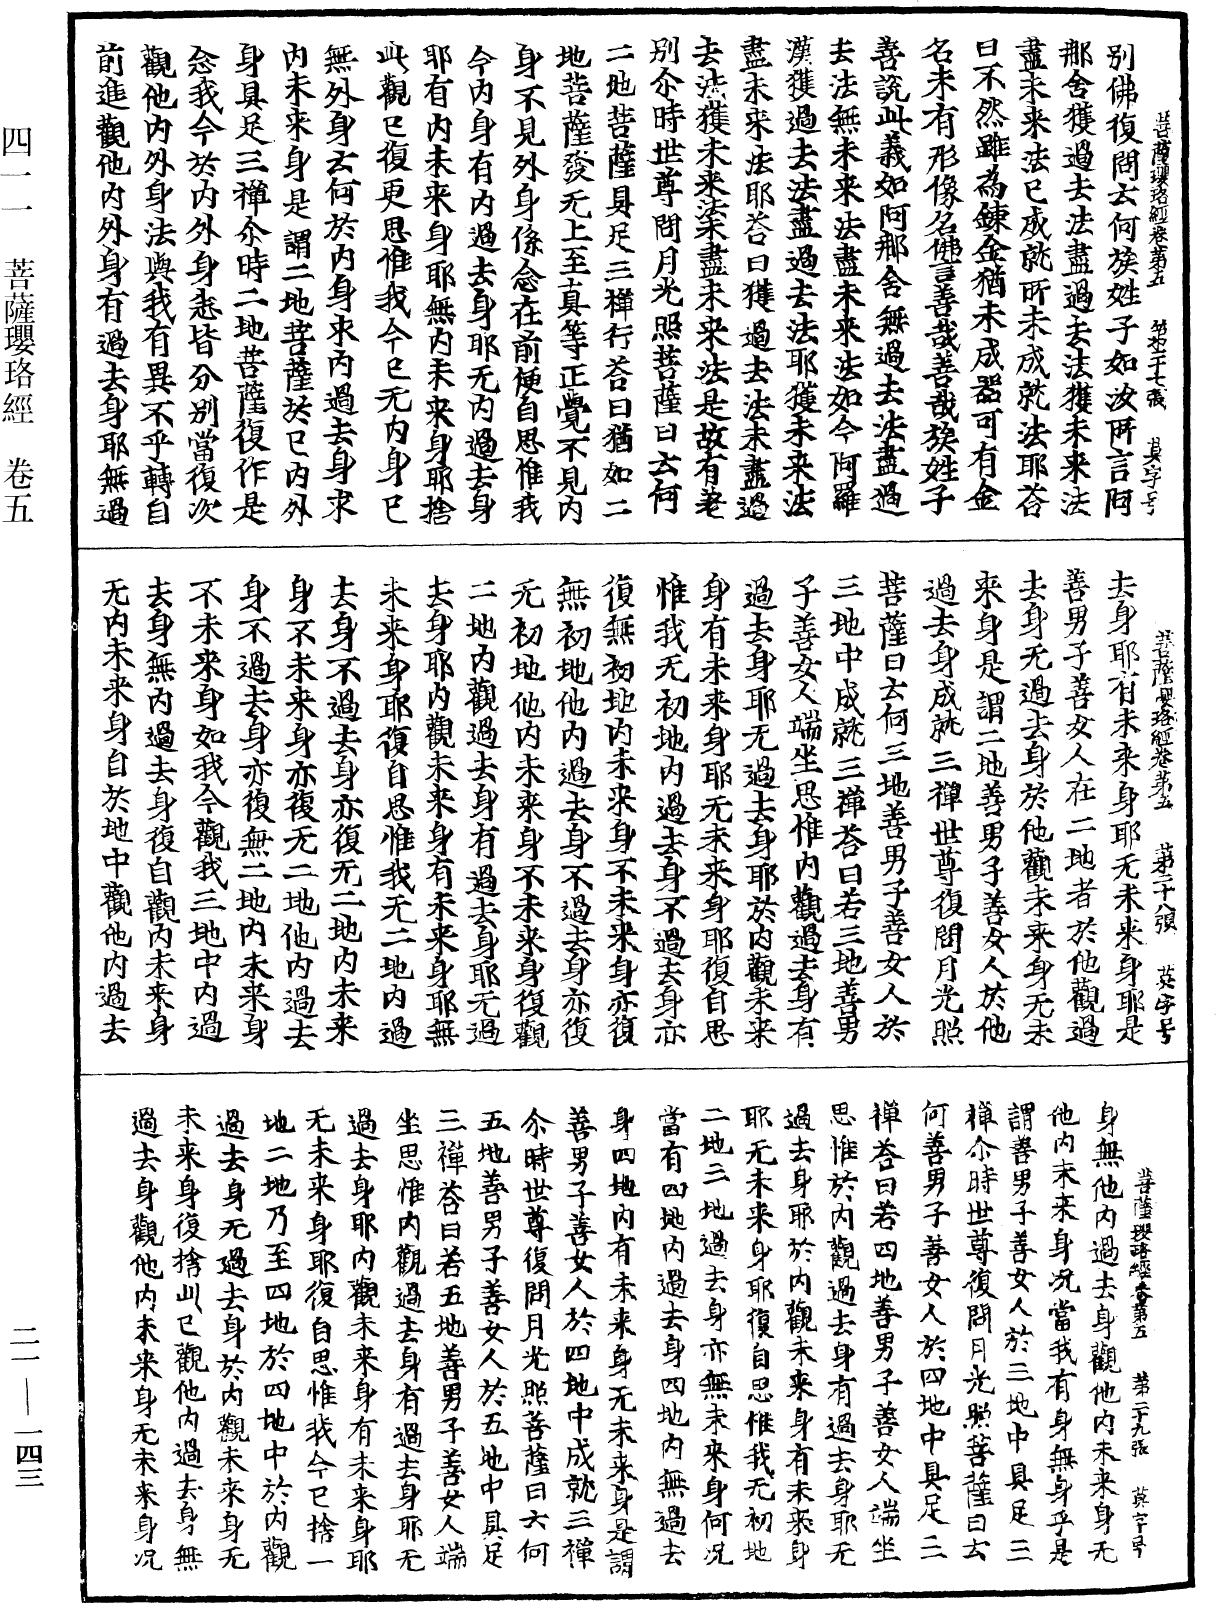 菩薩瓔珞經卷第五 第二十七張 莫字号
別佛復問云何族姓子如汝所言阿
那舍獲過去法盡過去法獲未来法
盡未来法已成就所未成就法耶荅
曰不然雖為鍊金猶未成器可有金
名未有形像名佛言善哉善哉族姓子
善說此義如阿那舍無過去法盡過
去法無未来法盡未来法如今阿羅
漢獲過去法盡過去法耶獲未来法
盡未来法耶荅曰獲過去法未盡過
去法獲未来法未盡未来法是故有差
別尒時世尊問月光照菩薩曰云何
二地菩薩具足三禪行荅曰猶如二
地菩薩發无上至真等正覺不見内
身不見外身係念在前便自思惟我
今内身有内過去身耶无内過去身
耶有内未来身耶無内未来身耶捨
此觀已復更思惟我今已无内身已
無外身云何於内身求内過去身求
内未来身是謂二地菩薩於已内外
身具足三禪尒時二地菩薩復作是
念我今於内外身悉皆分別當復次
觀他内外身法與我有異不乎轉自
前進觀他内外身有過去身耶無過
菩薩瓔珞經卷第五 第二十八張 莫字号
去身耶有未来身耶无未来身耶是
善男子善女人在二地者於他觀過
去身无過去身於他觀未来身无未
来身是謂二地善男子善女人於他
過去身成就三禪世尊復問月光照
菩薩曰云何三地善男子善女人於
三地中成就三禪荅曰若三地善男
子善女人端坐思惟内觀過去身有
過去身耶无過去身耶於内觀未来
身有未来身耶无未来身耶復自思
惟我无初地内過去身不過去身亦
復無初地内未来身不未来身亦復
無初地他内過去身不過去身亦復
无初地他内未来身不未来身復觀
二地内觀過去身有過去身耶无過
去身耶内觀未来身有未来身耶無
未来身耶復自思惟我无二地内過
去身不過去身亦復无二地内未来
身不未来身亦復无二地他内過去
身不過去身亦復無二地内未来身
不未来身如我今觀我三地中内過
去身無内過去身復自觀内未来身
无内未来身自於地中觀他内過去
菩薩瓔珞經卷第五 第二十九張 莫字号
身無他内過去身觀他内未来身无
他内未来身况當我有身無身乎是
謂善男子善女人於三地中具足三
禪尒時世尊復問月光照菩薩曰云
何善男子善女人於四地中具足三
禪荅曰若四地善男子善女人端坐
思惟於内觀過去身有過去身耶无
過去身耶於内觀未来身有未来身
耶无未来身耶復自思惟我无初地
二地三地過去身亦無未来身何况
當有四地内過去身四地内無過去
身四地内有未来身无未来身是謂
善男子善女人於四地中成就三禪
尒時世尊復問月光照菩薩曰云何
五地善男子善女人於五地中具足
三禪荅曰若五地善男子善女人端
坐思惟内觀過去身有過去身耶无
過去身耶内觀未来身有未来身耶
无未来身耶復自思惟我今已捨一
地二地乃至四地於四地中於内觀
過去身无過去身於内觀未来身无
未来身復捨此已觀他内過去身無
過去身觀他内未来身无未来身况
四一一 菩薩瓔珞經 卷五
二一——一四三